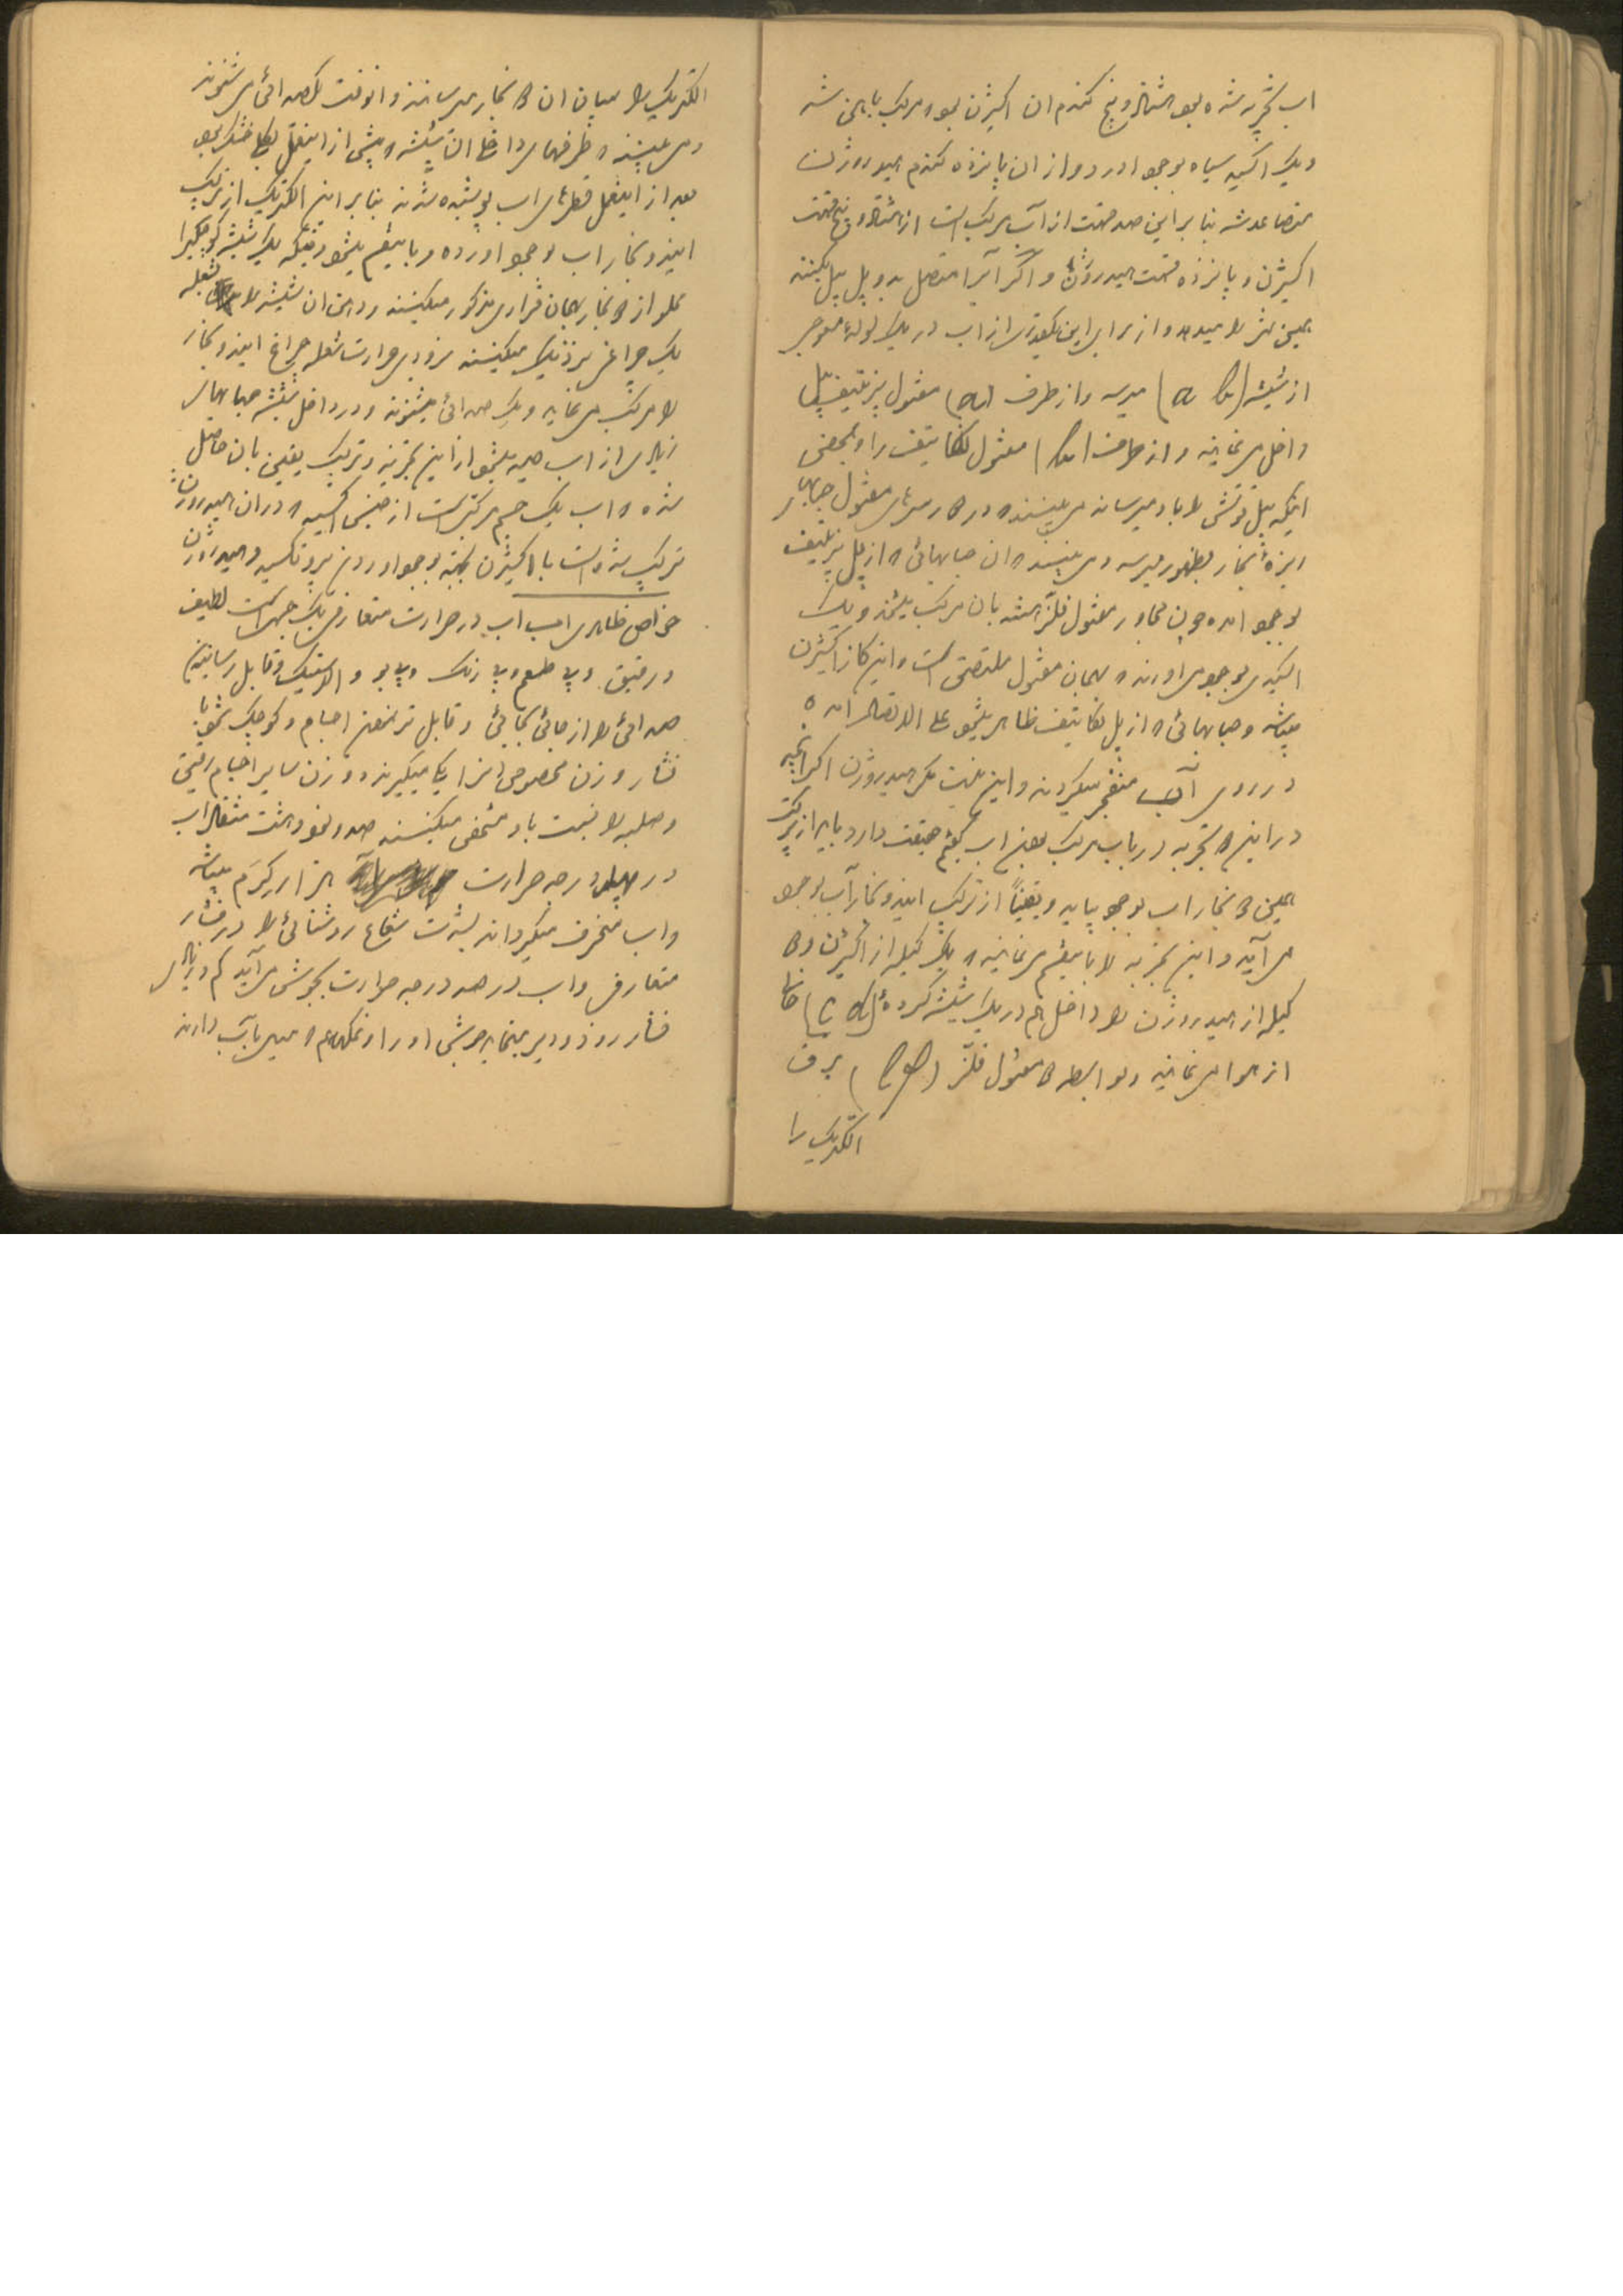 اب تجربه شده بود هشتاد و پنج گندم ان اکیژن بود و مرکب با اهن شد
و یک اکسید سیاه بوجود اورد و از ان پانزده گندم هیدروژن
متصاعد شد بنا براین صد قسمت از آب مرکب است از هشتاد و پنج قسمت
اکیژن و پانزده قسمت هیدروژن و اگر آنرا متصل بدو پل پیل بکنند
همین را میدهد و از برای این یکقدری از اب در یک لوله
از شیشه (a b) میریند و از طرف (a) مفتول پزیتیف پیل
داخل می نمایند و از طرف (b) مفتول نگاتیف را و بمحض
اینکه پیل قوتش را باد میرساند می بینند که در سرهای مفتول حبابهای
ریزهٔ بخار بظهور میرسد و می بینند ان حبابهائی که از پل پزیتیف
بوجود امده چون مجاور مفتول فلز است بان مرکب میشود و یک
اکسیدی بوجود می اورند که بهمان مفتول ملتصق است و این کاز اکیژن
میباشد و حبابهائی که از پل نگاتیف ظاهر میشود علی الاتصال امده
در روی آب منفجر میگردند و این نیست مگر هیدروژن اگر انچه
در این تجربه در باب مرکب بودن اب گفتیم حقیقت دارد باید از ترکیب
همین دو بخار اب بوجود بیاید و یقیناً از ترکیب ایندو بخار آب بوجود
می آید و این تجربه را باینقسم می نمایند که یک کیله از اکیژن و دو
کیله از هیدروژن را داخل هم در یک شیشه کرده (c d) خالی
از هوا می نمایند و بواسطه دو مفتول فلز برق
الکتریک را
الکتریک را بمیان ان دو بخار میرسانند و انوقت یک صدائی می شنوند
و می بینند که طرفهای داخل ان شیشه که پیش از اینعمل بکلی خشک بود
بعد از اینعمل قطرهای اب پوشیده شدند بنا براین الکتریک از ترکیب
ایندو بخار اب بوجود اورده و باینقسم میشود وقتیکه یک شیشه کوچکی را
مملو از دو بخار بهمان قرار مذکور میکنند و دهن ان شیشه را شعله
یک چراغی نزدیک میکنند بزودی حرارت شعله چراغ ایندو بخار
را مرکب می نماید و یک صدائی میشنوند و در داخل شیشه حبابهای
زیادی از اب دیده میشود از این تجربه و ترکیب یقین بان حاصل
شده که اب یک جسم مرکبی است از جنس اکسید که در ان هیدروژن
ترکیب شده است با اکیژن بجهة بوجود اوردن پروتکسید هیدروژن
خواص ظاهری اب اب در حرارت متعارفی یک جسمی است لطیف
و رقیق و بی طعم و بی رنگ و بی بو و الاستیک و قابل رسانیدن
صدائی را از جائی بجائی و قابل تر نمودن اجسام و کوچک میشود با
فشار و وزن مخصوصی انرا یک میگیرند و وزن سایر اجسام رقیق
و صلبه را نسبت باو مشخص میکنند صد و نود و هشت مثقال اب
در چهار درجه حرارت هزار گرم میباشد
و اب منحرف میگرداند بشدت شعاع روشنائی را در فشار
متعارفی و اب در صد درجه حرارت بجوش می آید کم و زیادی
فشار زود و دیر مینماید جوشش اورا و نمکهائی که میل باب دارند